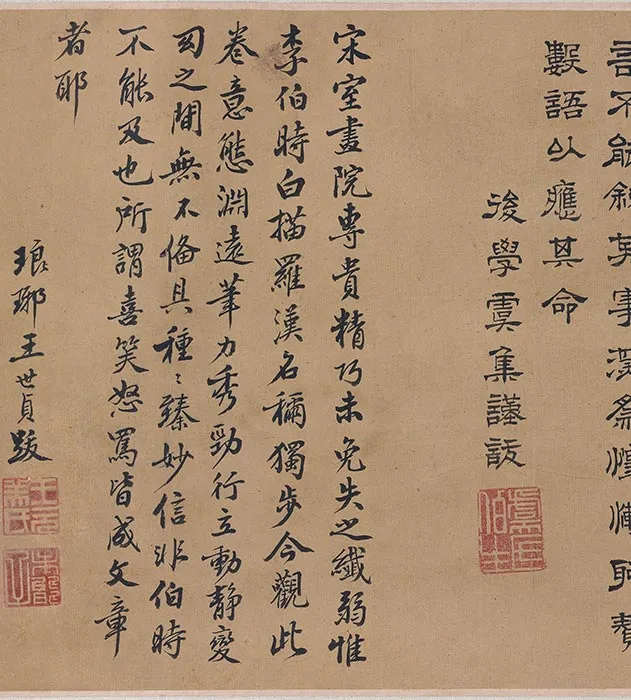 不能叙其事 聊贅
數語以應其命
後學虞集謹跋
宋室畫院專貴精巧未免失之纖弱惟
李伯時白描羅漢名稱獨步今觀此
卷意態淵遠筆力秀勁行立動靜變
幻之間無不備具種〻臻妙信非伯時
不能及也所謂喜笑怒罵皆成文章
者耶
琅琊王世貞跋